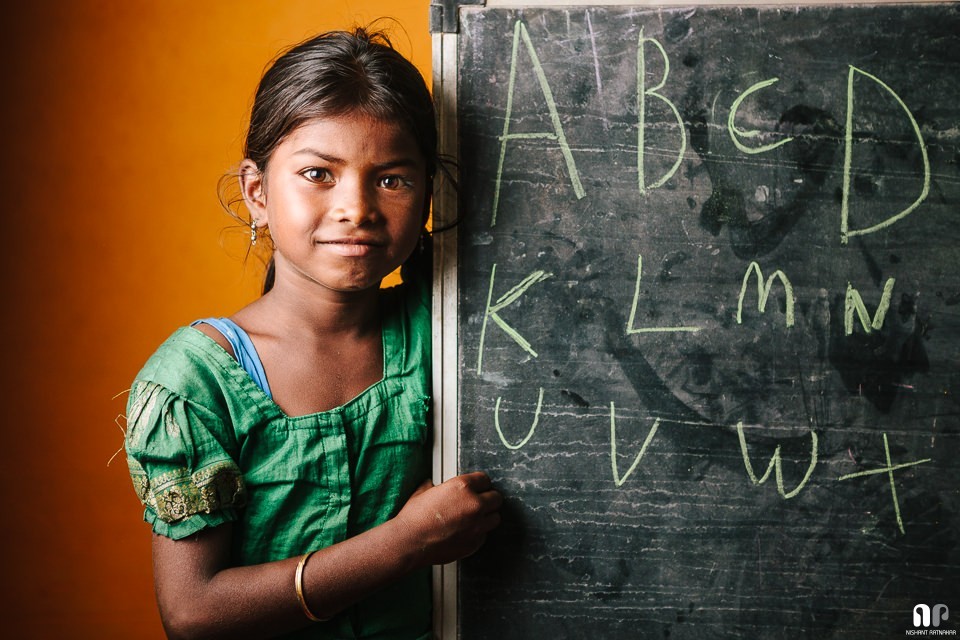 A B C D
K L M N
U V W X
NISHANT RATNAKAR